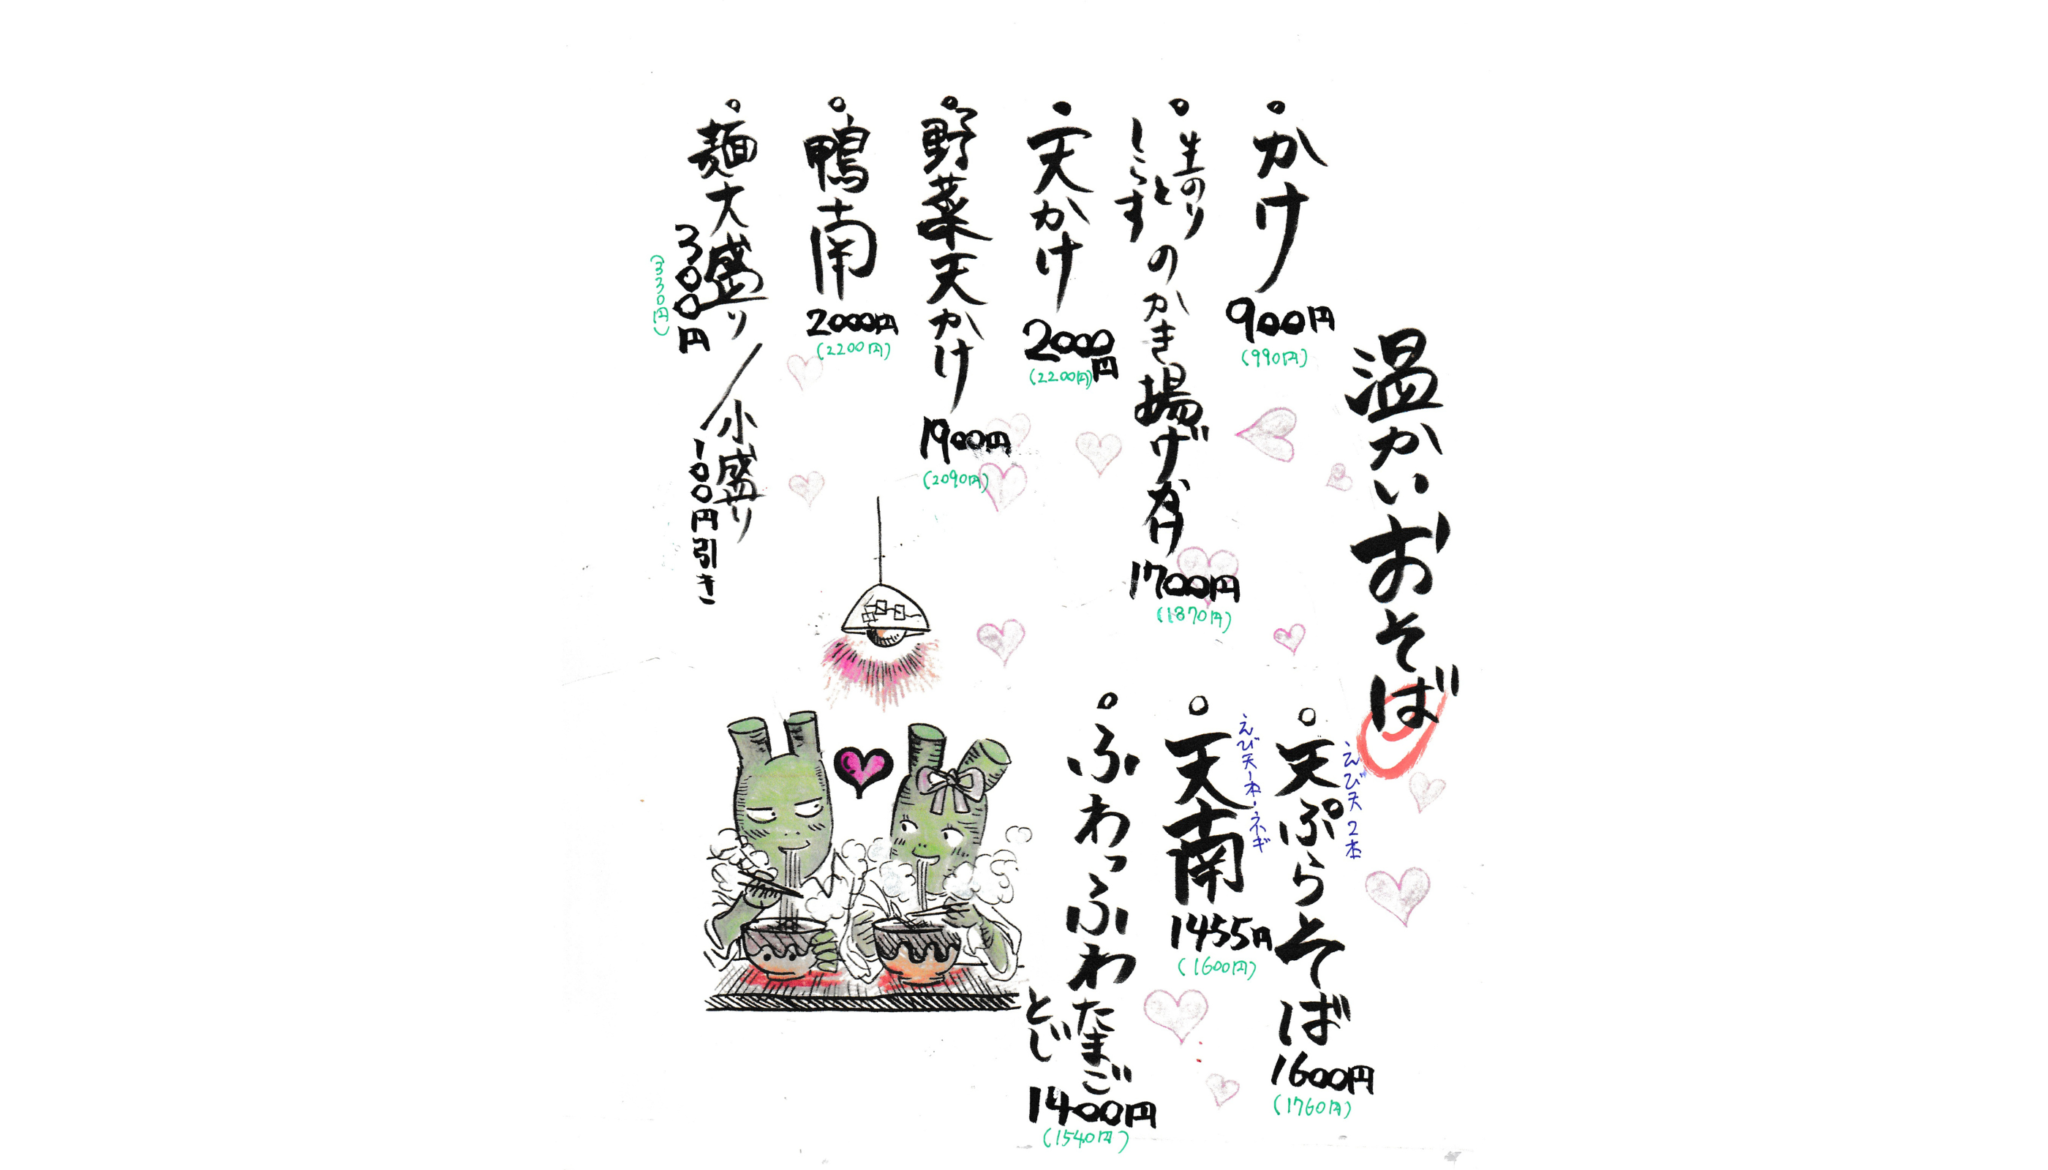 温かいおそば
かけ
900円
(990円)
生のり
と
しらす
のかき揚げかけ
1700円
(1870円)
天かけ
2000円
(2200円)
野菜天かけ
1900円
(2090円)
鴨南
2000円
(2200円)
麺大盛り/小盛り
300円
(330円)
100円引き
えび天2本
天ぷらそば
1600円
(1760円)
えび天1本・ネギ
天南
1455円
(1600円)
ふわっふわたまご
とじ
1400円
(1540円)